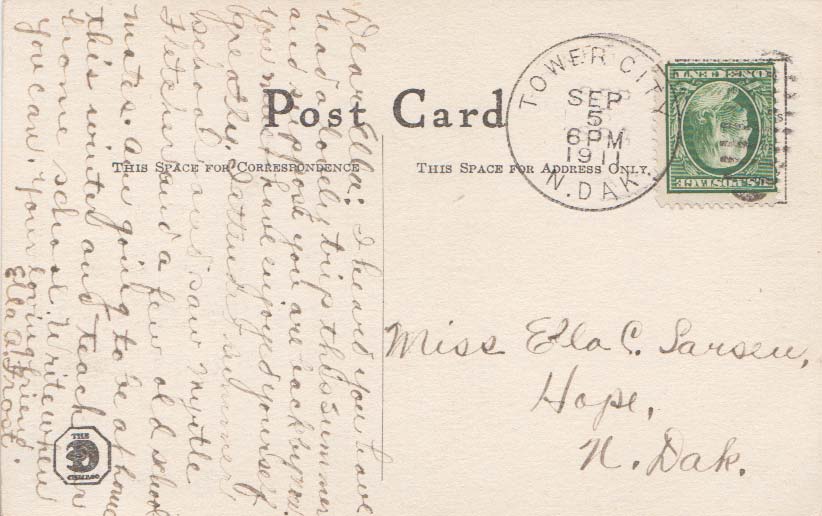 Post Card
THIS SPACE FOR CORRESPONDENCE
THIS SPACE FOR ADDRESS ONLY.
TOWER CITY
SEP
5
6 PM
1911
N. DAK.
U.S. POSTAGE
ONE CENT
Miss Ella C. Larsen,
Hope,
N. Dak.
Dear Ella: I heard you have
had a lovely trip this summer
and suppose you are back by now.
you must have enjoyed yourself
greatly. I attended summer
school and saw Myrtle
Fletcher and a few old school
mates. Am going to be at home
this winter and teach our
home school. Write when
you can. Your loving friend
Ella A. Frost.
THE
CHICAGO